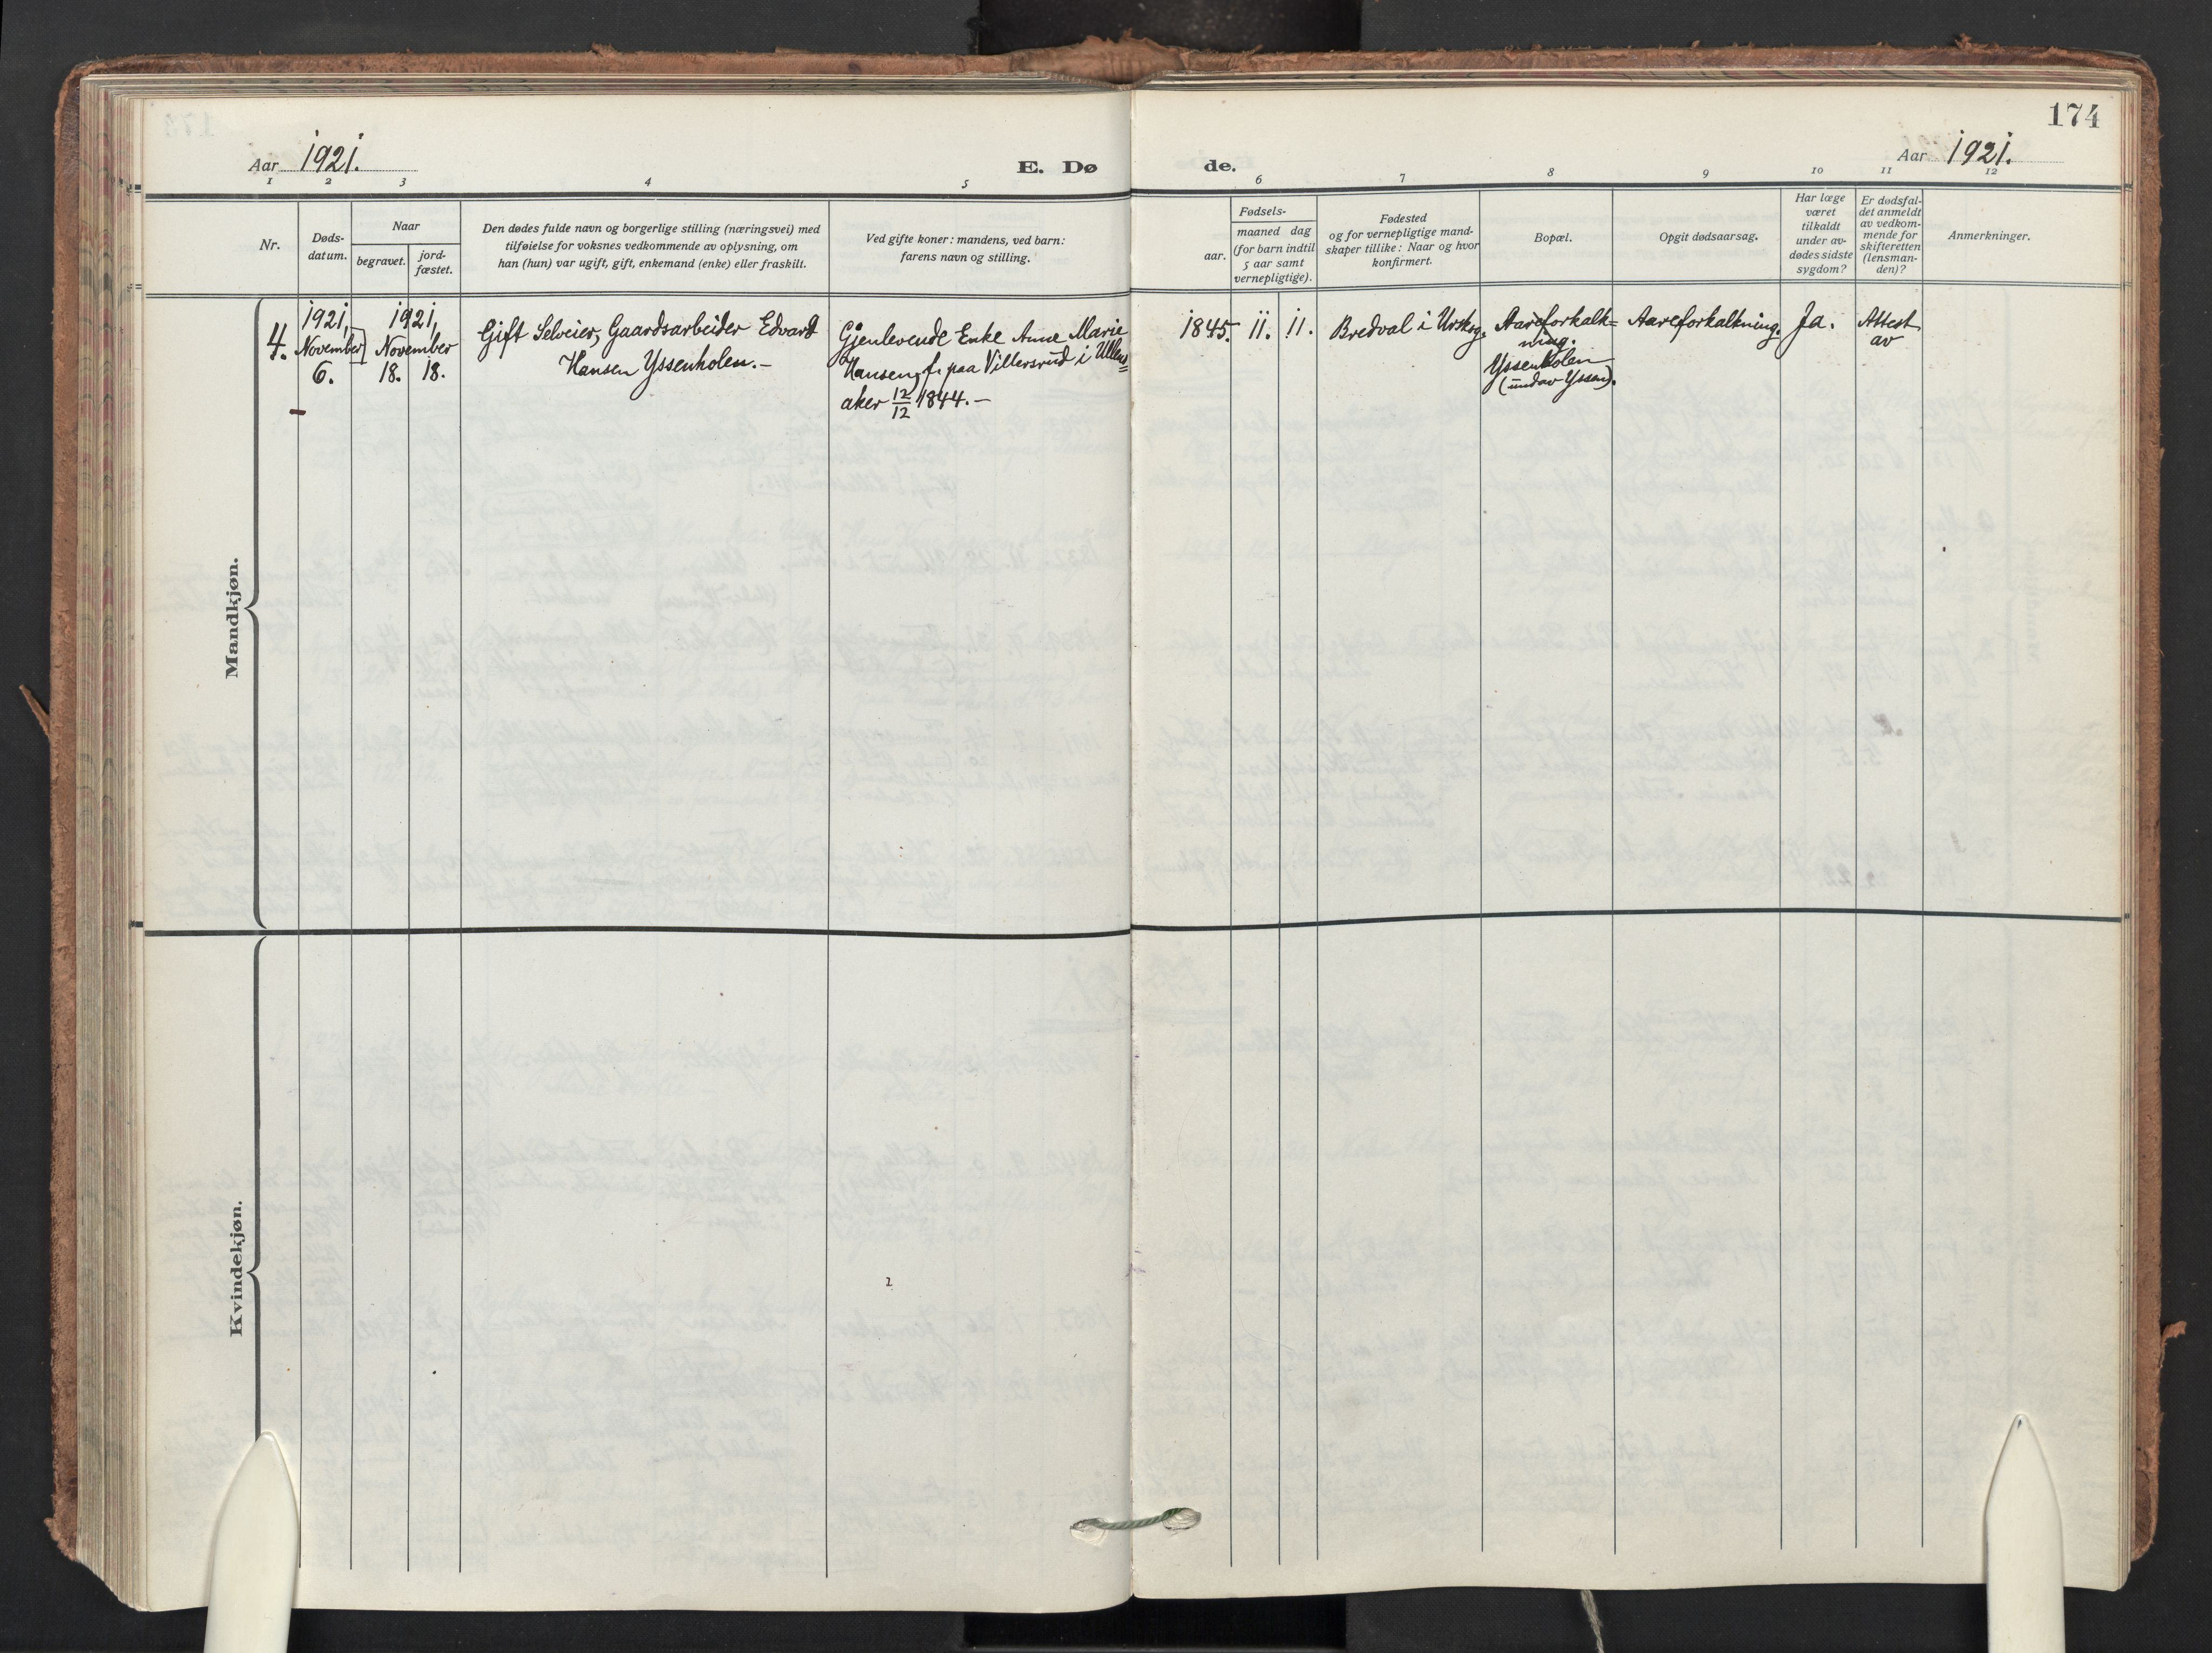 174
Aar 1921.
E. Dø
de.
Aar 1921.
1 2 3 4 5 6 7 8 9 10 11 12
Nr.
Døds-
datum.
Naar
begravet.
jord-
fæstet.
Den dødes fulde navn og borgerlige stilling (næringsvei) med
tilføielse for voksnes vedkommende av oplysning, om
han (hun) var ugift, gift, enkemand (enke) eller fraskilt.
Ved gifte koner: mandens, ved barn:
farens navn og stilling.
Fødsels-
aar.
maaned dag
(for barn indtil
5 aar samt
vernepligtige).
Fødested
og for vernepligtige mand-
skaper tillike: Naar og hvor
konfirmert.
Bopæl.
Opgit dødsaarsag.
Har læge
været
tilkaldt
under av-
dødes sidste
sygdom?
Er dødsfal-
det anmeldt
av vedkom-
mende for
skifteretten
(lensman-
den)?
Anmerkninger.
Mandkjøn.
4.
1921,
November
6.
1921,
November
18. 18.
Gift Selveier, Gaardsarbeider Edvard
Hansen Yssenholen.-
Gjenlevende Enke Anne Marie
Hansen, f. paa Villersrud i Ullens=
aker 12/12 1844.-
1845. 11. 11.
Bredval i Urskog.
Aareforkalk=
ning.
Yssenholen
(undav Yssen).
Aareforkalkning.
Ja.
Attest
av
Kvindekjøn.